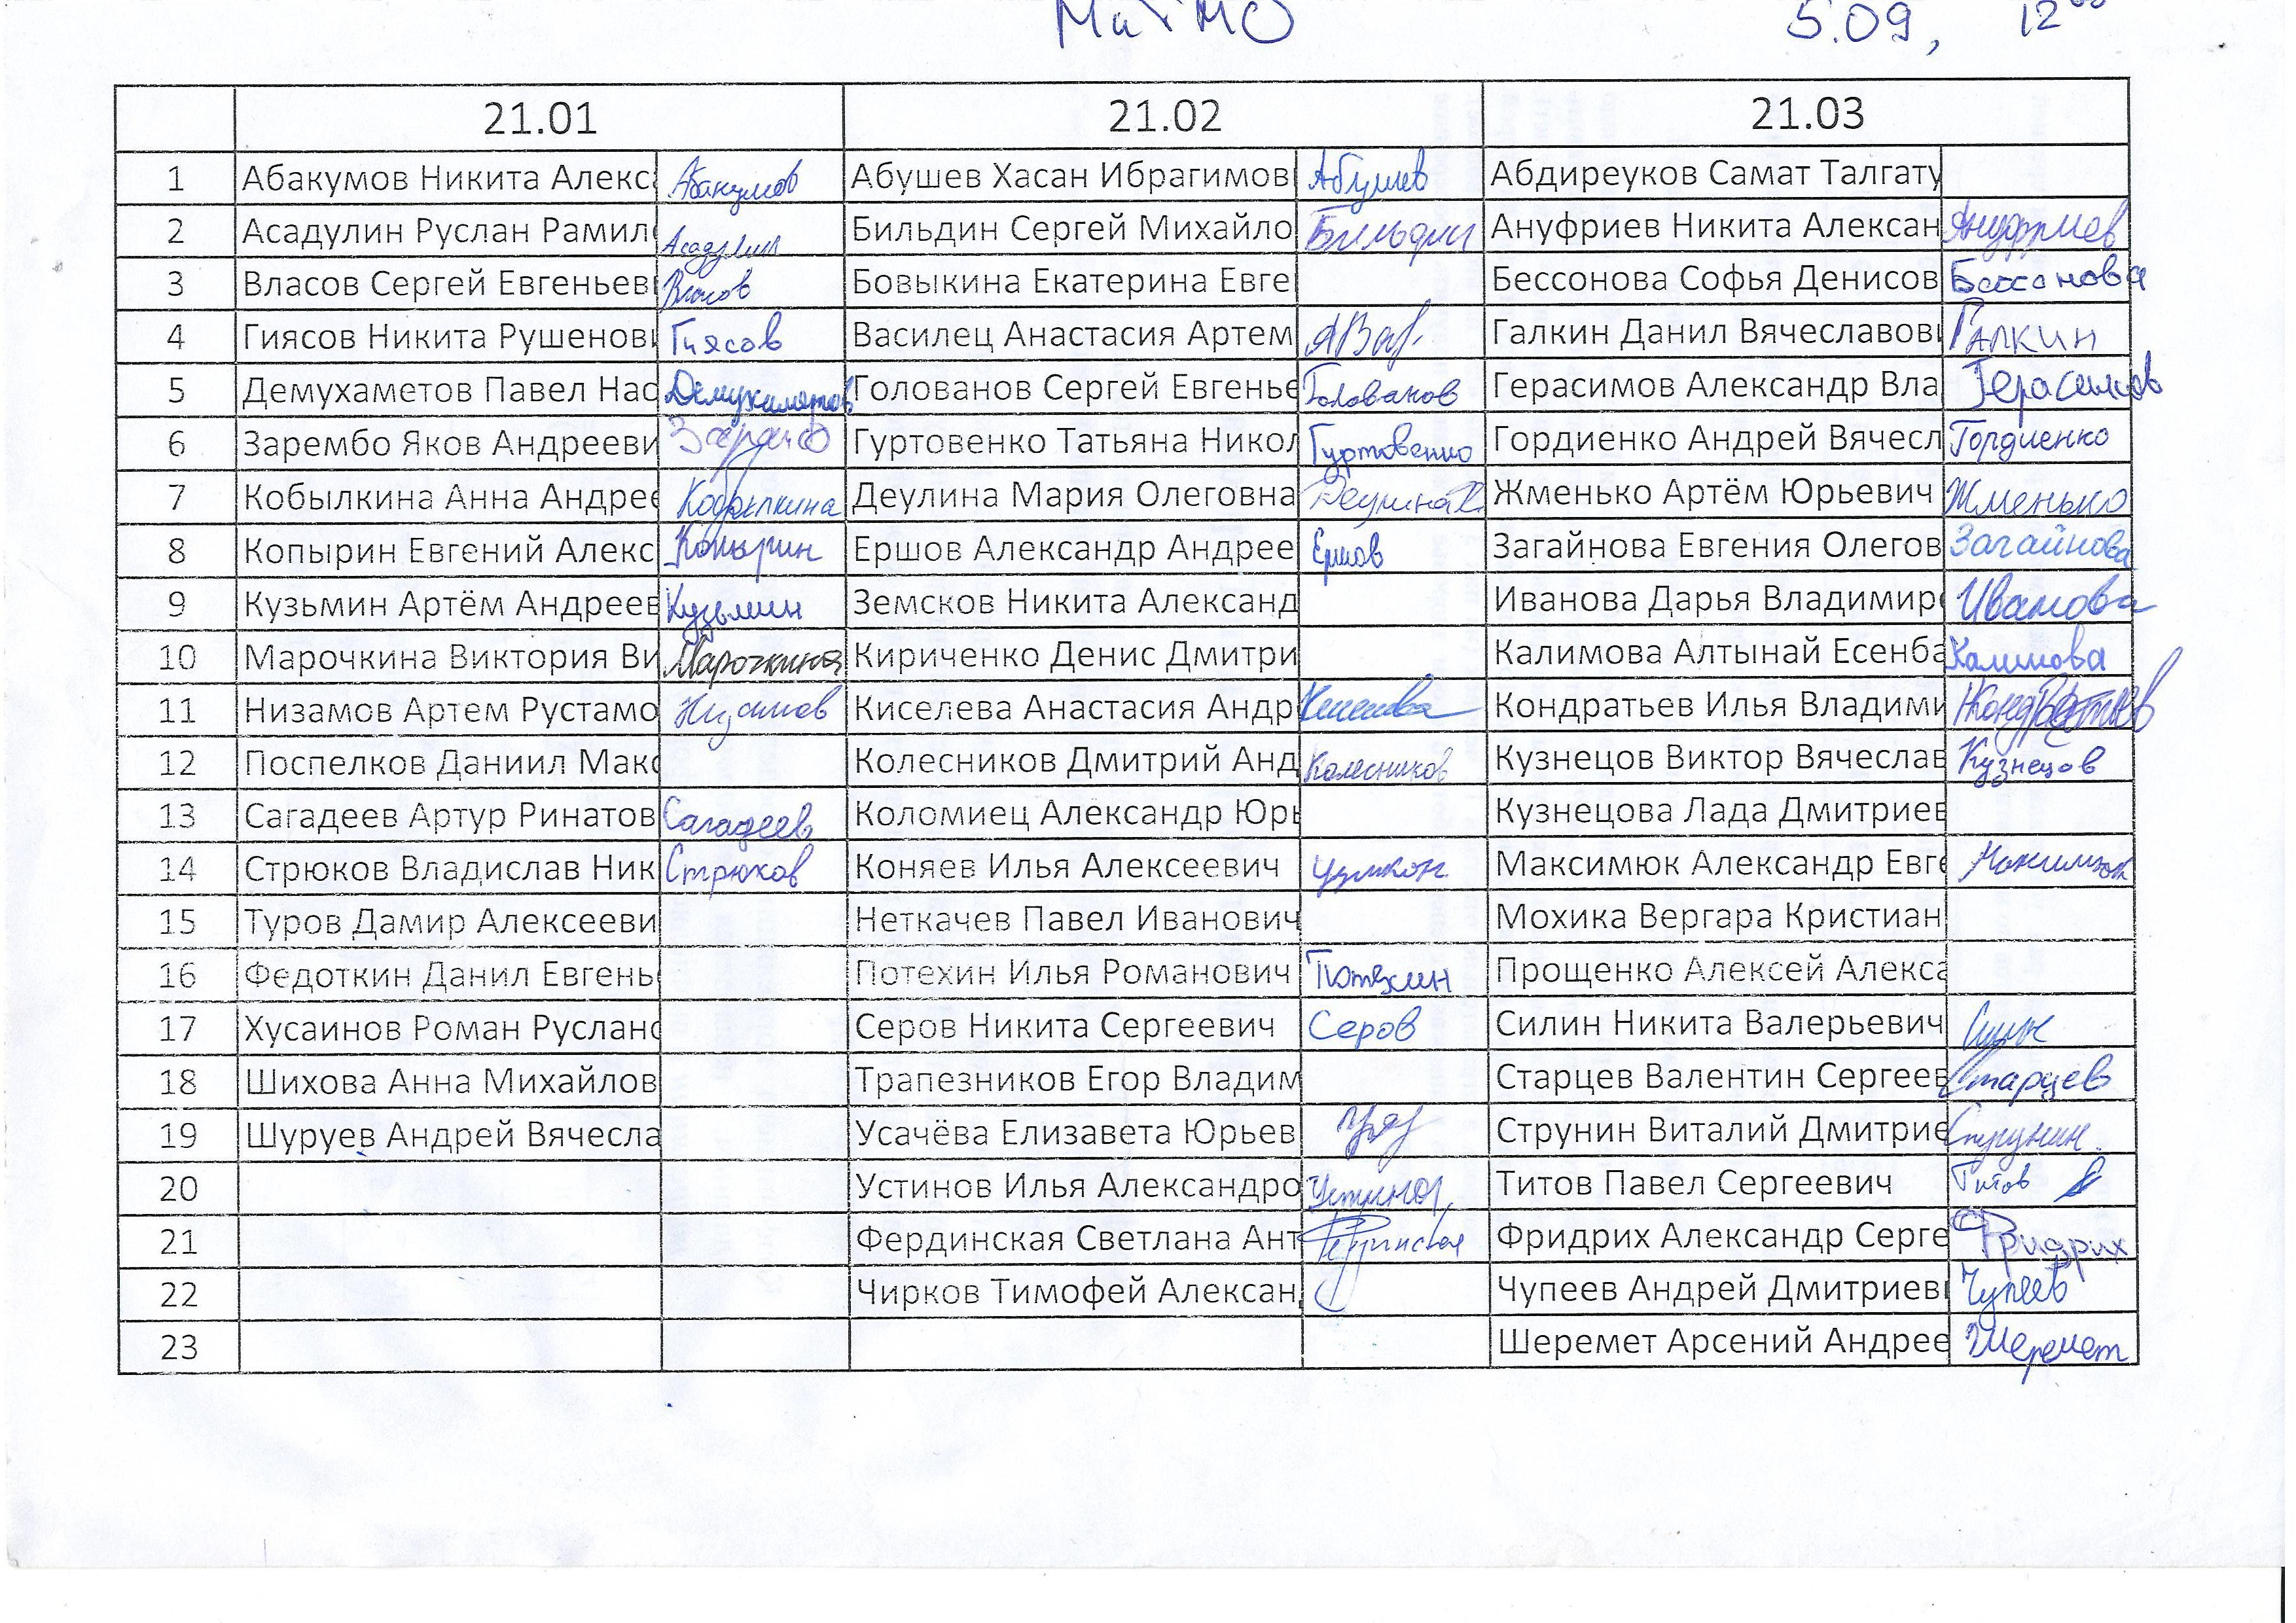 МиТМО 5.09, 12⁰⁰
21.01 21.02 21.03
1 Абакумов Никита Алекс Абакумов Абушев Хасан Ибрагимов Абушев Абдиреуков Самат Талгату
2 Асадулин Руслан Рамил Асадулин Бильдин Сергей Михайло Бильдин Ануфриев Никита Алексан Ануфриев
3 Власов Сергей Евгеньев Власов Бовыкина Екатерина Евге Бессонова Софья Денисов Бессонова
4 Гиясов Никита Рушенов Гиясов Василец Анастасия Артем Галкин Данил Вячеславов Галкин
5 Демухаметов Павел Нас Демухаметов Голованов Сергей Евгенье Голованов Герасимов Александр Вла Герасимов
6 Зарембо Яков Андрееви Гуртовенко Татьяна Никол Гуртовенко Гордиенко Андрей Вячесл Гордиенко
7 Кобылкина Анна Андрее Кобылкина Деулина Мария Олеговна Деулина Жменько Артём Юрьевич Жменько
8 Копырин Евгений Алекс Копырин Ершов Александр Андрее Ершов Загайнова Евгения Олегов Загайнова
9 Кузьмин Артём Андреев Кузьмин Земсков Никита Александ Иванова Дарья Владимир Иванова
10 Марочкина Виктория Ви Марочкина Кириченко Денис Дмитри Калимова Алтынай Есенба Калимова
11 Низамов Артем Рустамо Низамов Киселева Анастасия Андр Киселева Кондратьев Илья Владими Кондратьев
12 Поспелков Даниил Макс Колесников Дмитрий Анд Колесников Кузнецов Виктор Вячеслав Кузнецов
13 Сагадеев Артур Ринатов Сагадеев Коломиец Александр Юрь Кузнецова Лада Дмитриев
14 Стрюков Владислав Ник Стрюков Коняев Илья Алексеевич Максимюк Александр Евге Максимюк
15 Туров Дамир Алексееви Неткачев Павел Иванович Мохика Вергара Кристиан
16 Федоткин Данил Евгень Потехин Илья Романович Потехин Прощенко Алексей Алекса
17 Хусаинов Роман Руслано Серов Никита Сергеевич Серов Силин Никита Валерьевич Силин
18 Шихова Анна Михайлов Трапезников Егор Владим Старцев Валентин Сергеев Старцев
19 Шуруев Андрей Вячесла Усачёва Елизавета Юрьев Струнин Виталий Дмитрие Струнин
20 Устинов Илья Александро Устинов Титов Павел Сергеевич Титов
21 Фердинская Светлана Ант Фердинская Фридрих Александр Серге Фридрих
22 Чирков Тимофей Алексан Чупеев Андрей Дмитриев Чупеев
23 Шеремет Арсений Андрее Шеремет